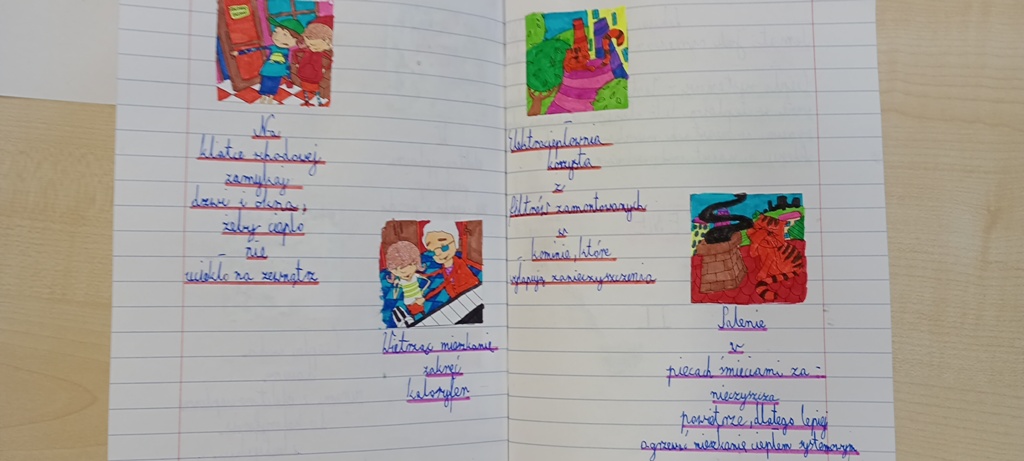 Na
klatce schodowej
zamykaj
drzwi i okna,
żeby ciepło
nie
uciekło na zewnątrz
Wietrząc mieszkanie
zakręć
kaloryfer
Elektrociepłownia
korzysta
z
filtrów zamontowanych
w
kominie, które
wyłapują zanieczyszczenia
Palenie
w
piecach śmieciami za-
nieczyszcza
powietrze, dlatego lepiej
ogrzewać mieszkanie ciepłem systemowym